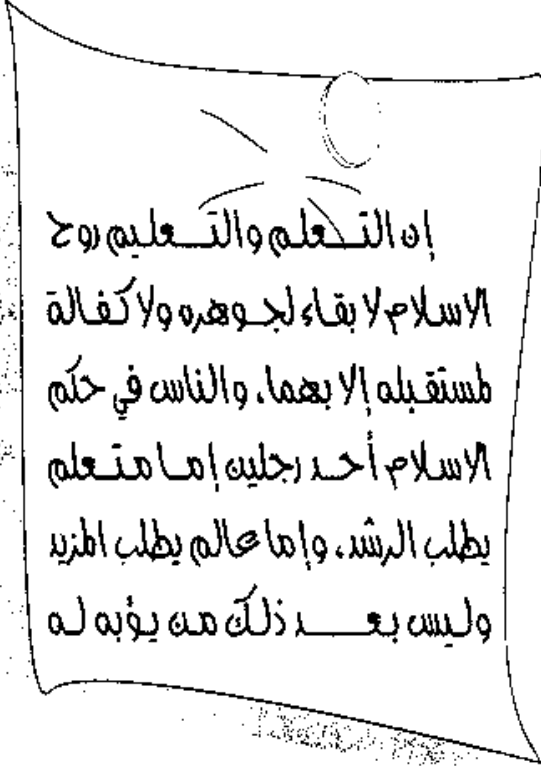 إن التـعلم والتـعليم روح
الاسلام لا بقاء لجـوهره ولا كفـالة
لمستقبله إلا بهما، والناس في حكم
الاسلام أحـد رجلين إمـا متـعلم
يطلب الرشد، وإما عالم يطلب المزيد
وليس بعـــد ذلك من يؤبه لـه